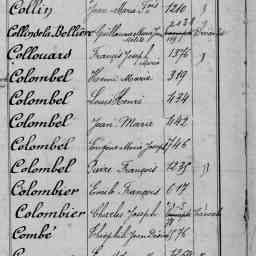 Collin Jean Marie 1210 "
Collin de la Bellière Guillaume Marie 2038
Collouars François Joseph Marie 1376 "
Colombel Henri Marie 319
Colombel Louis Henri 434
Colombel Jean Marie 442
Colombel Eugène Marie Joseph 746
Colombel Pierre François 1235 "
Colombier Emile François 617
Colombier Charles Joseph
Combé Théophile Jean Désiré 576